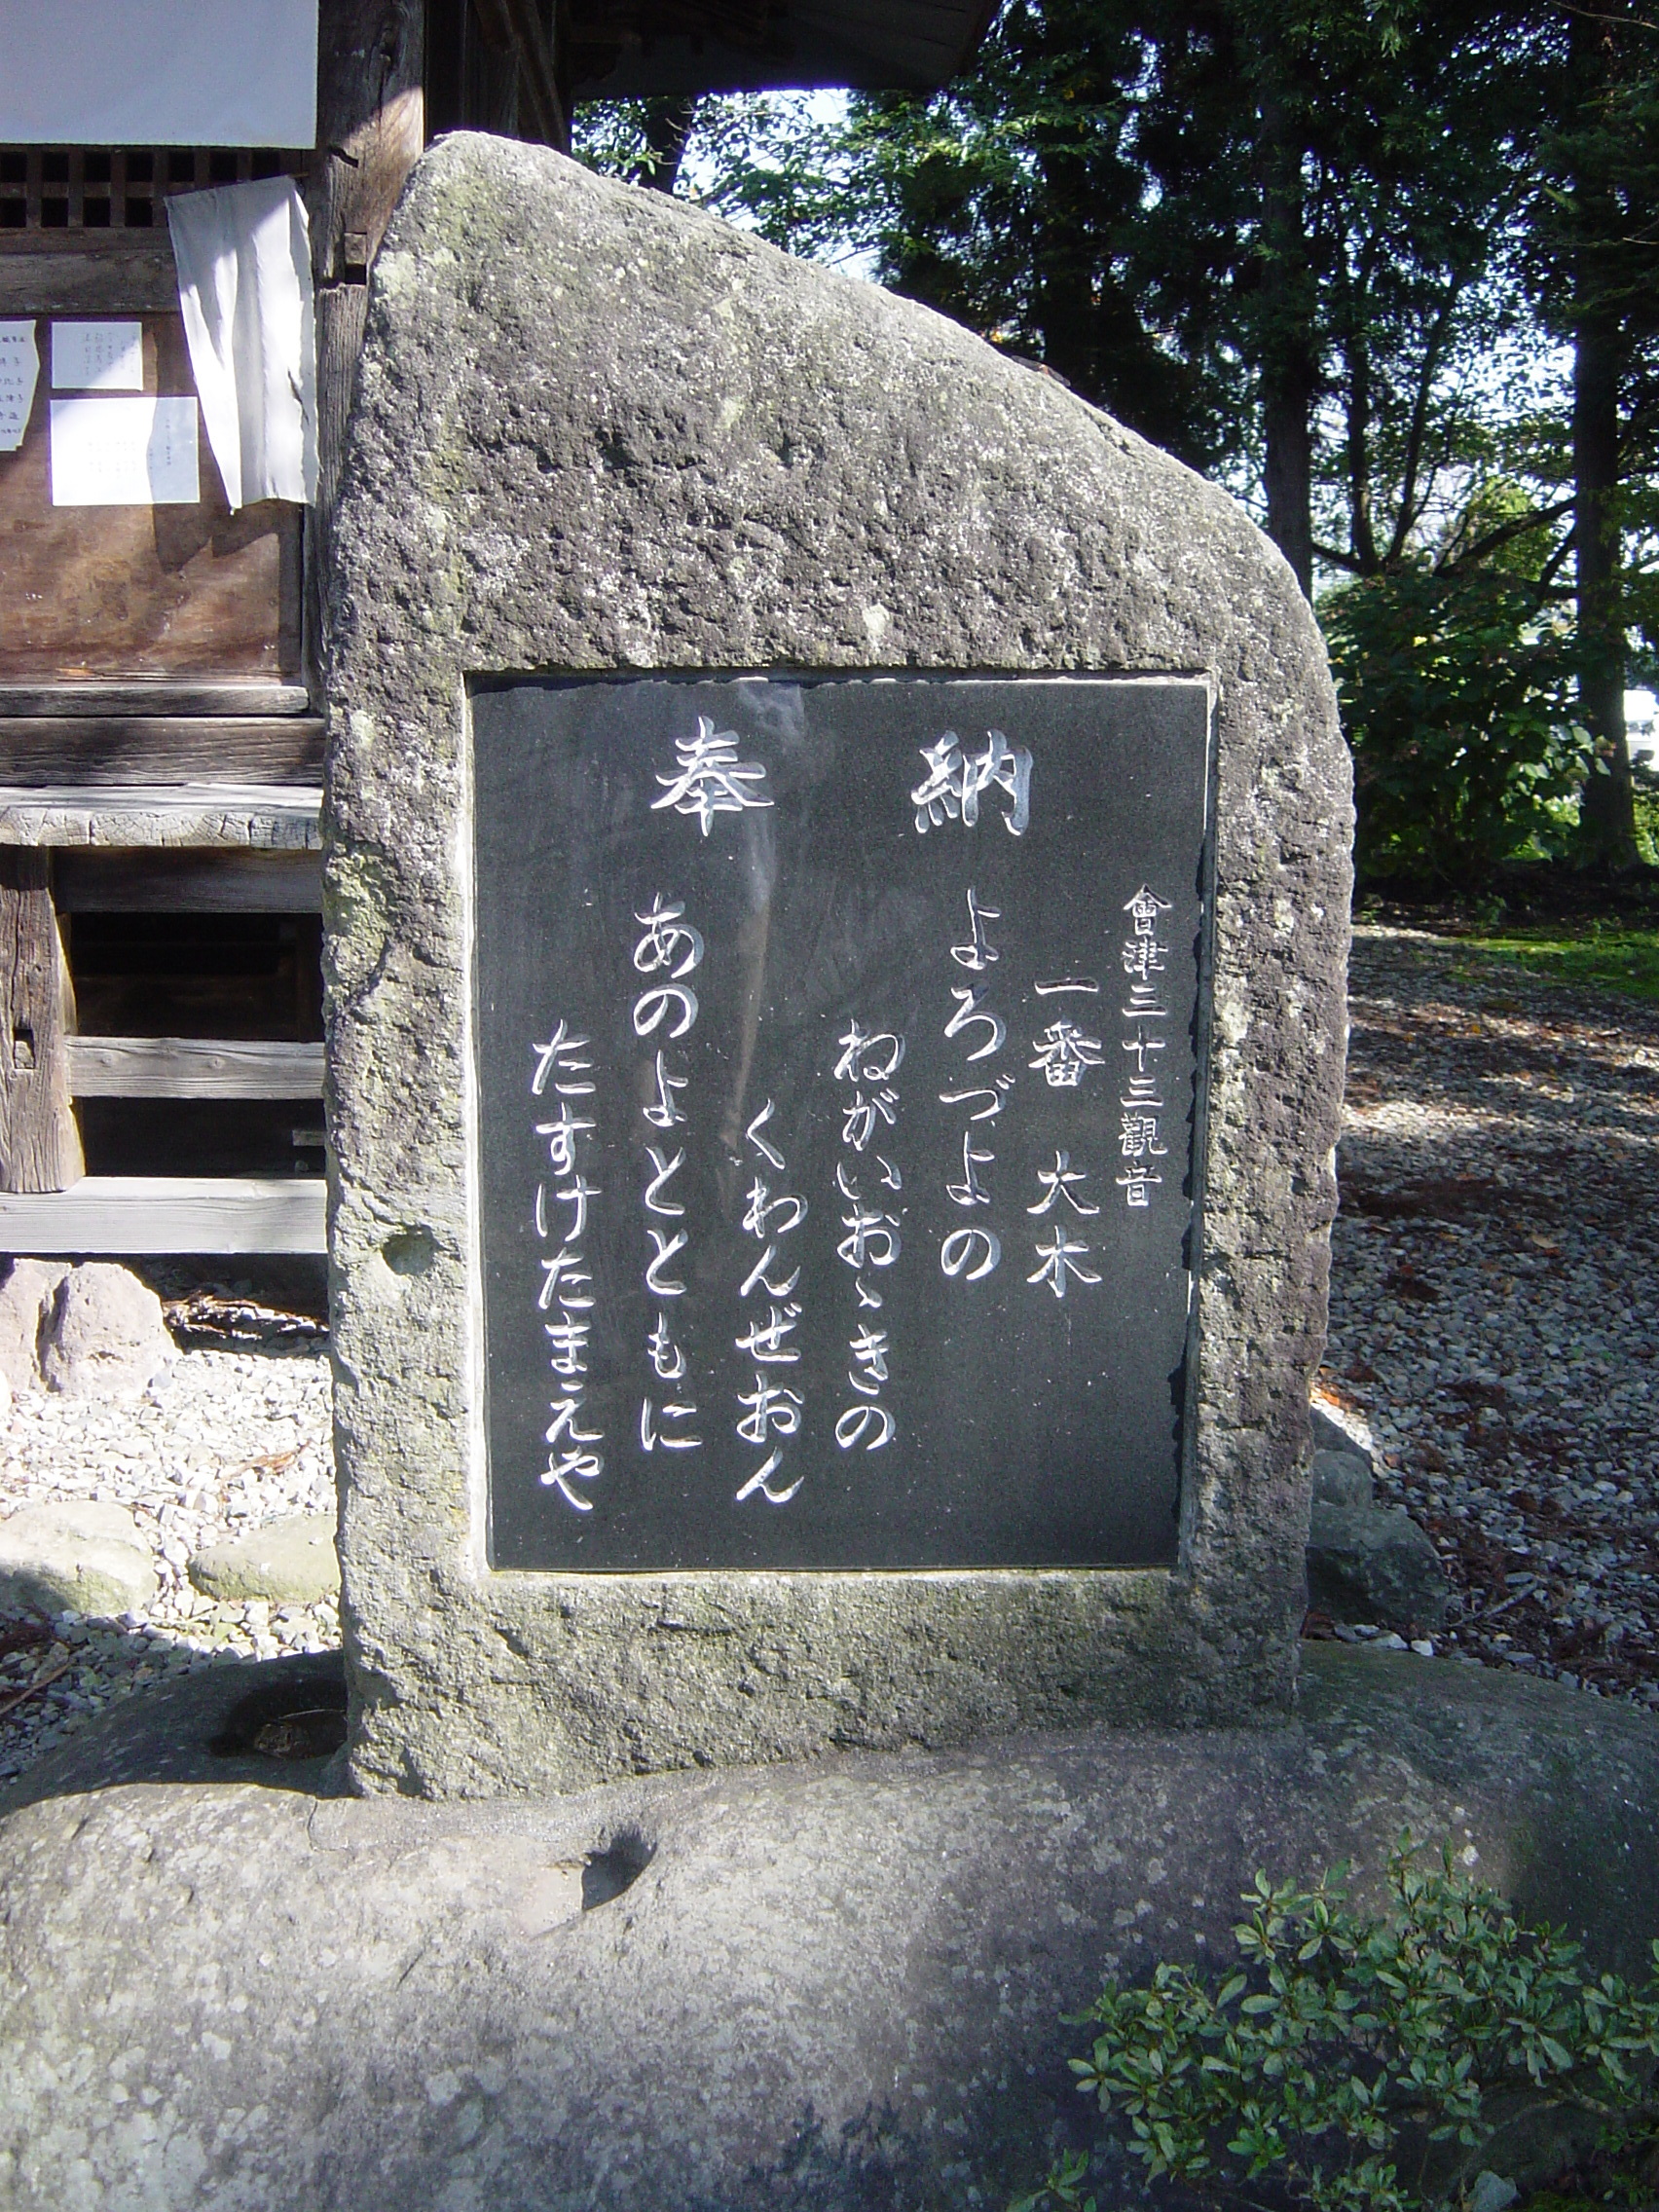 奉納
會津三十三觀音
一番 大木
よろづよの
ねがいおゝきの
くわんぜおん
あのよとともに
たすけたまえや